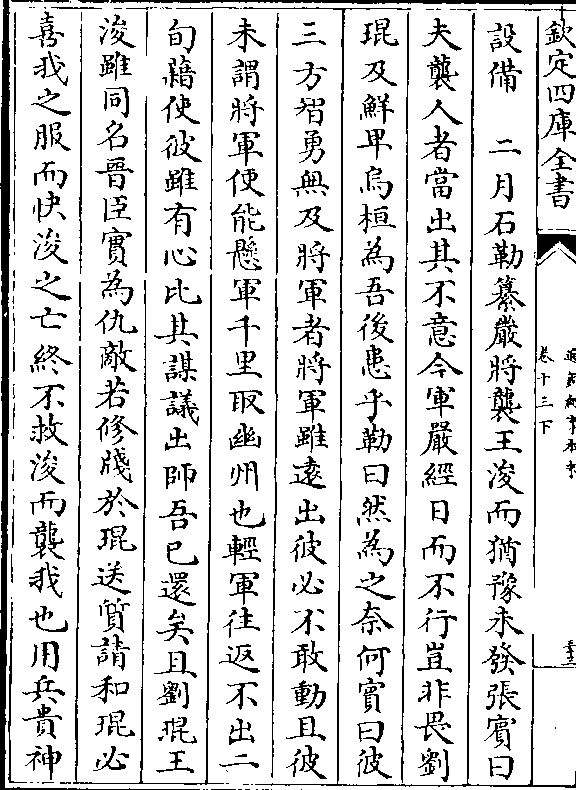 欽定四庫全書
通鑑紀事本末
卷十三下
設備　二月石勒纂嚴將襲王浚而猶豫未發張賓曰
夫襲人者當出其不意今軍嚴經日而不行豈非畏劉
琨及鮮卑烏桓為吾後患乎勒曰然為之奈何賓曰彼
三方智勇無及將軍者將軍雖遠出彼必不敢動且彼
未謂將軍便能懸軍千里取幽州也輕軍往返不出二
旬藉使彼雖有心比其謀議出師吾已還矣且劉琨王
浚雖同名晉臣實為仇敵若修牋於琨送質請和琨必
喜我之服而快浚之亡終不救浚而襲我也用兵貴神